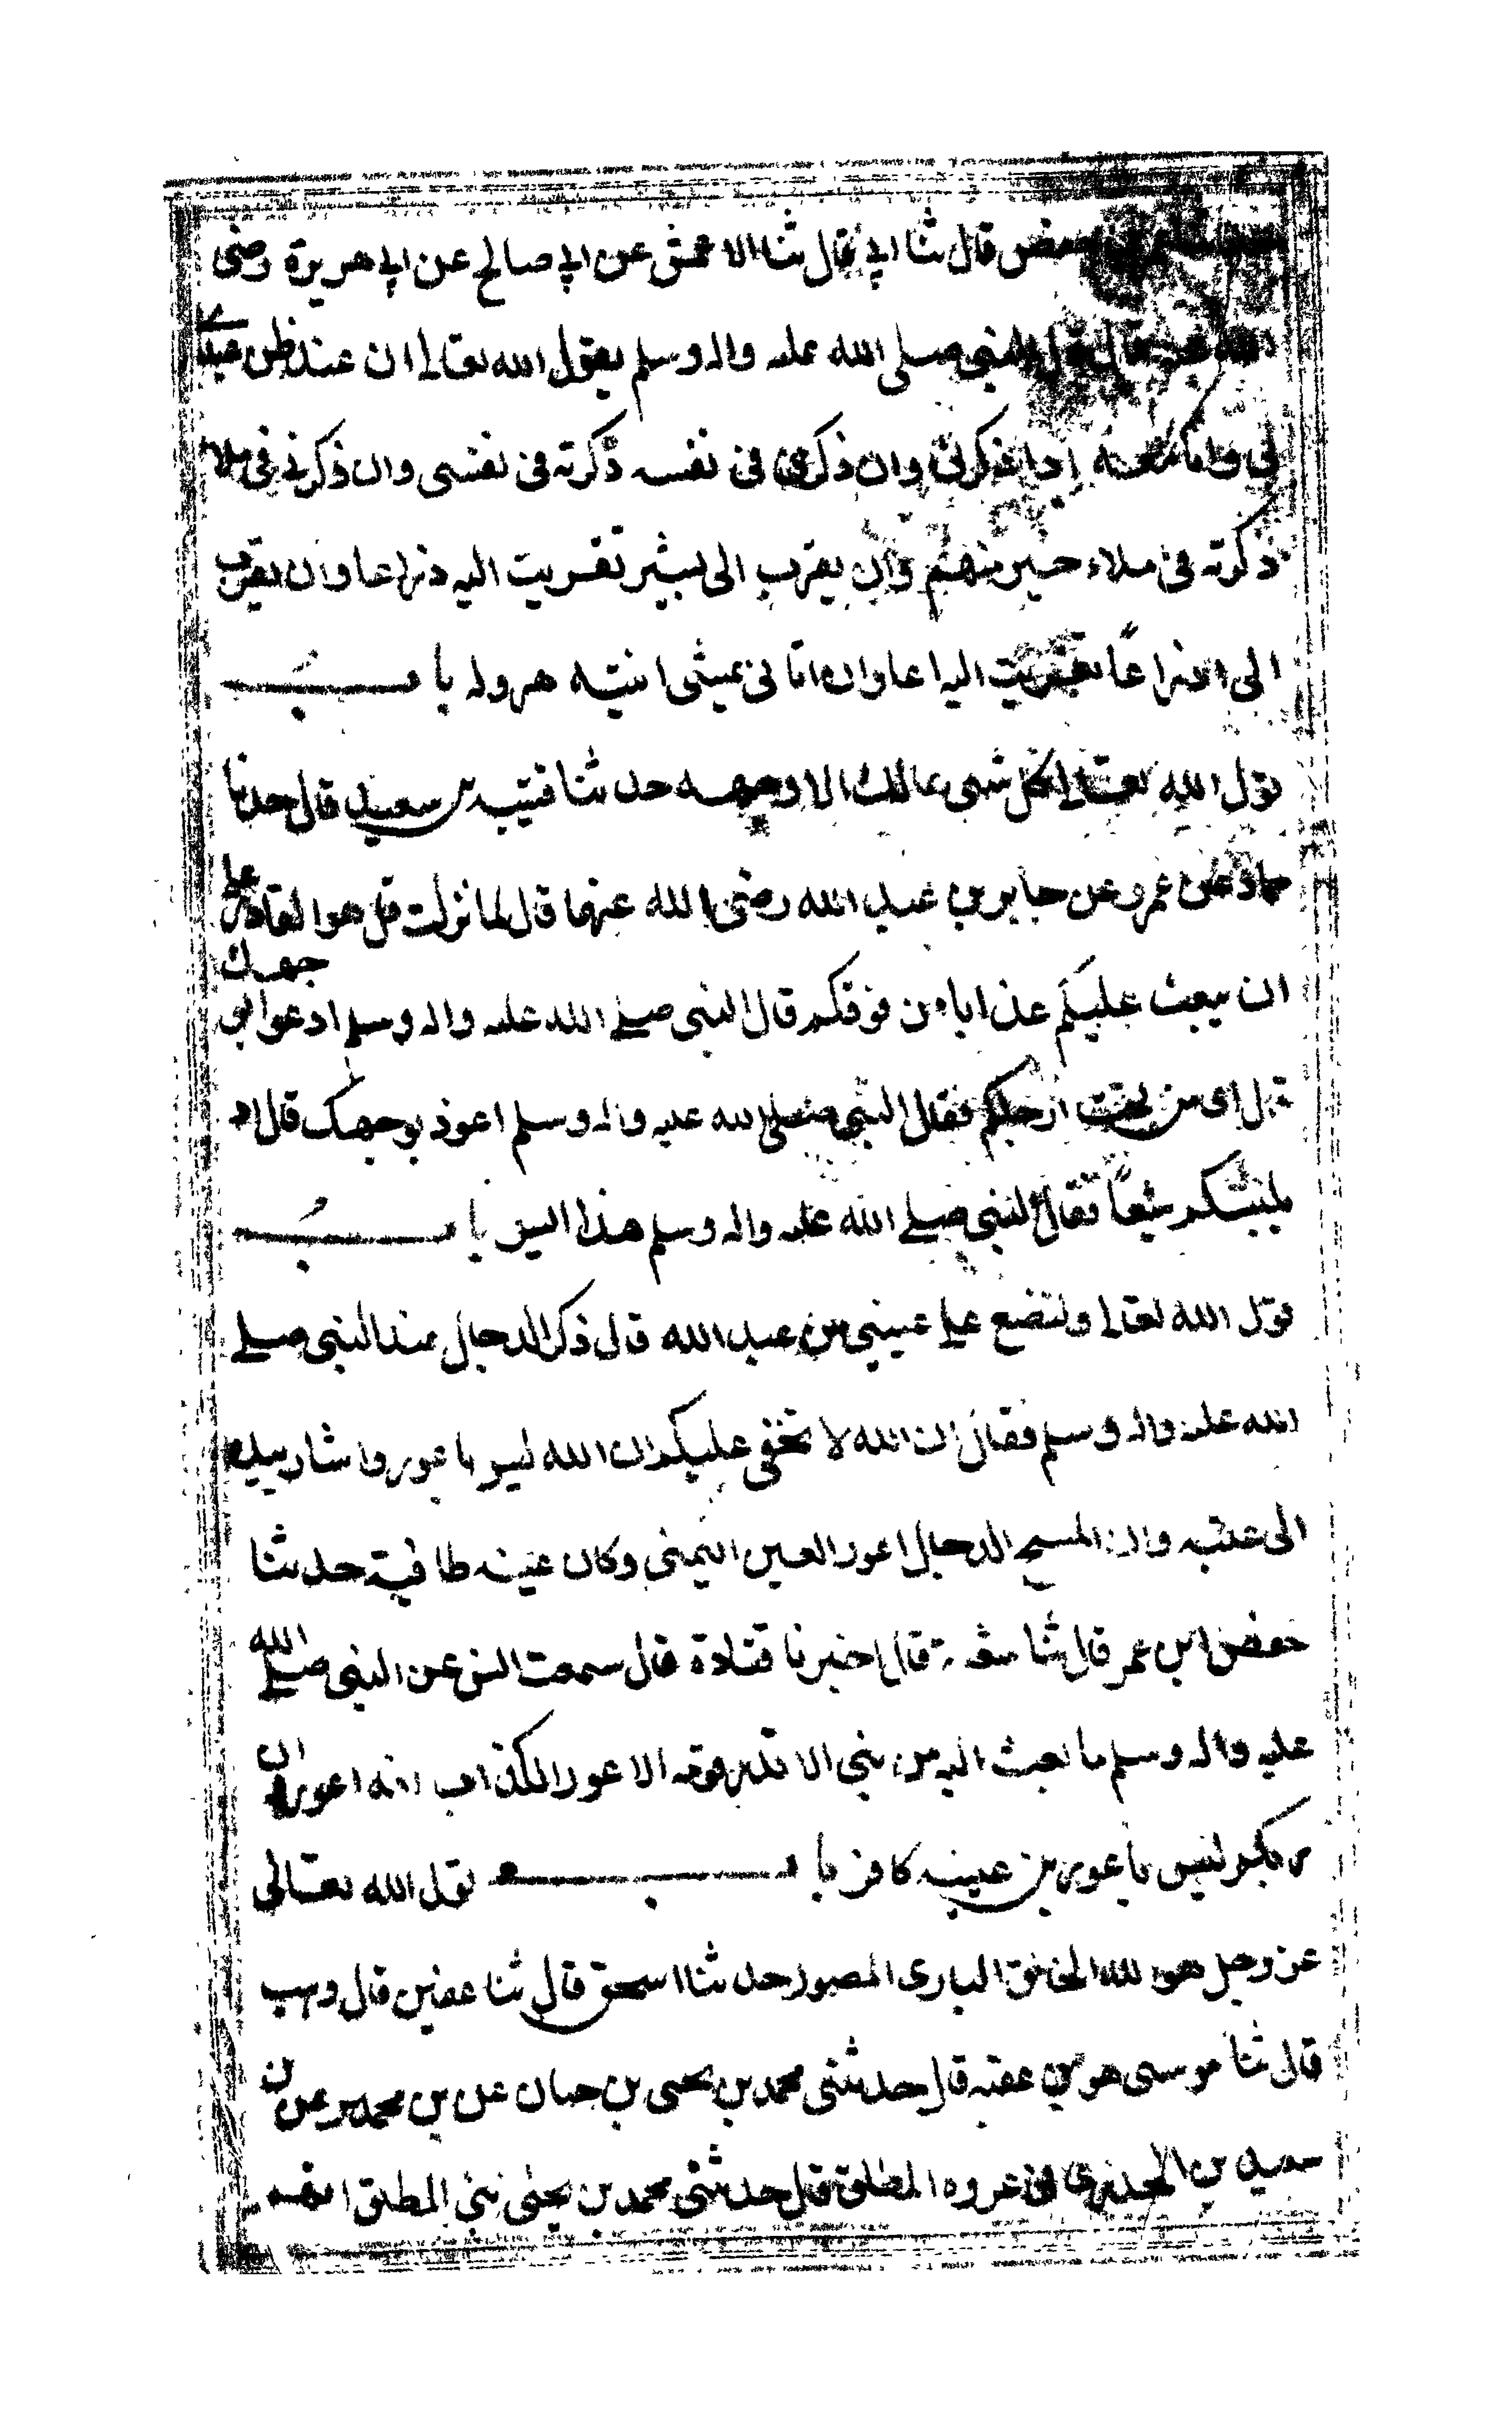 حفص قال ثنا ابي قال ثنا الاعمش عن ابي صالح عن ابي هريرة رضى
الله عنه قال قال النبي صلى الله عليه واله وسلم يقول الله تعالى ان عند ظن عبدي
بي وانا معه اذا ذكرني وان ذكرني في نفسه ذكرته في نفسى وان ذكرني في ملاء
ذكرته في ملاء خير منهم وان يقرب الى بشبر تقربت اليه ذراعا وان يقرب
الى ذراعًا تقربت اليه باعا وان اتاني يمشى اتيته هروله باب
قول الله تعالى كل شى هالك الا وجهه حدثنا قتيبه بن سعيد قال حدثنا
حماد عن عمرو عن جابر بن عبد الله رضى الله عنهما قال لما نزلت قل هو القادر على
ان يبعث عليكم عذابا من فوقكم قال النبي صلى الله عليه واله وسلم اعوذ بوجهك
قال او من تحت ارجلكم فقال النبي صلى الله عليه واله وسلم اعوذ بوجهك قال او
يلبسكم شيعًا فقال النبي صلى الله عليه واله وسلم هذا ايسر باب
قول الله تعالى ولتصنع على عيني عن عبد الله قال ذكر الدجال عند النبي صلى
الله عليه واله وسلم فقال ان الله لا تخفى عليكم ان الله ليس باعور واشار بيده
الى عينه وان المسيح الدجال اعور العين اليمنى وكان عينه طافية حدثنا
حفص ابن عمر قال ثنا شعبة قال اخبرنا قتادة قال سمعت انس عن النبي صلى الله
عليه واله وسلم ما بعث الله من نبي الا انذر قومه الاعور الكذاب انه اعور وان
ربكم ليس باعور بين عينيه كافر باب قول الله تعالى
عز وجل هو الله الخالق البارى المصور حدثنا اسحق قال ثنا عفان قال وهيب
قال ثنا موسى هو بن عقبه قال حدثنى محمد بن يحيى بن حبان عن بن محيريز عن
سعيد بن الخدري في غزوه المطلق قال حدثنى محمد بن يحيى بني المطلق انهم